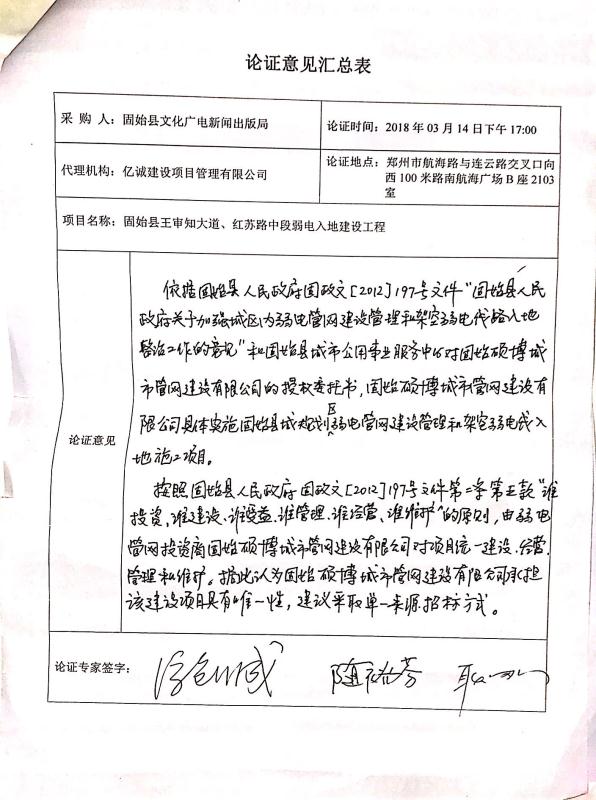 论证意见汇总表
采 购 人：固始县文化广电新闻出版局
论证时间：2018 年 03 月 14 日下午 17:00
代理机构：亿诚建设项目管理有限公司
论证地点：郑州市航海路与连云路交叉口向
西 100 米路南航海广场 B 座 2103
室
项目名称：固始县王审知大道、红苏路中段弱电入地建设工程
论证意见
依据固始县人民政府固政文[2012]197号文件"固始县人民
政府关于加强城区内弱电管网建设管理和架空弱电线路入地
整治工作的意见"和固始县城市公用事业服务中心对固始硕博城
市管网建设有限公司的授权委托书，固始硕博城市管网建设有
限公司具体实施固始县城规划区弱电管网建设管理和架空弱电线入
地施工项目。
按照固始县人民政府固政文[2012]197号文件第二条第五款"谁
投资、谁建设、谁受益、谁管理、谁经营、谁维护"的原则，由弱电
管网投资商固始硕博城市管网建设有限公司对项目统一建设、经营、
管理和维护。据此认为固始硕博城市管网建设有限公司承担
该建设项目具有唯一性，建议采取单一来源招标方式。
论证专家签字：